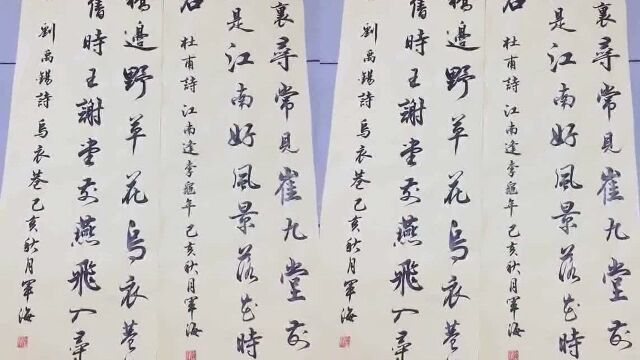 裏尋常見崔九堂前
是江南好風景落花時
杜甫詩 江南逢李龜年 己亥秋月軍海
橋邊野草花烏衣巷
舊時王謝堂前燕飛入尋
劉禹錫詩 烏衣巷 己亥秋月軍海
裏尋常見崔九堂前
是江南好風景落花時
杜甫詩 江南逢李龜年 己亥秋月軍海
橋邊野草花烏衣巷
舊時王謝堂前燕飛入尋
劉禹錫詩 烏衣巷 己亥秋月軍海